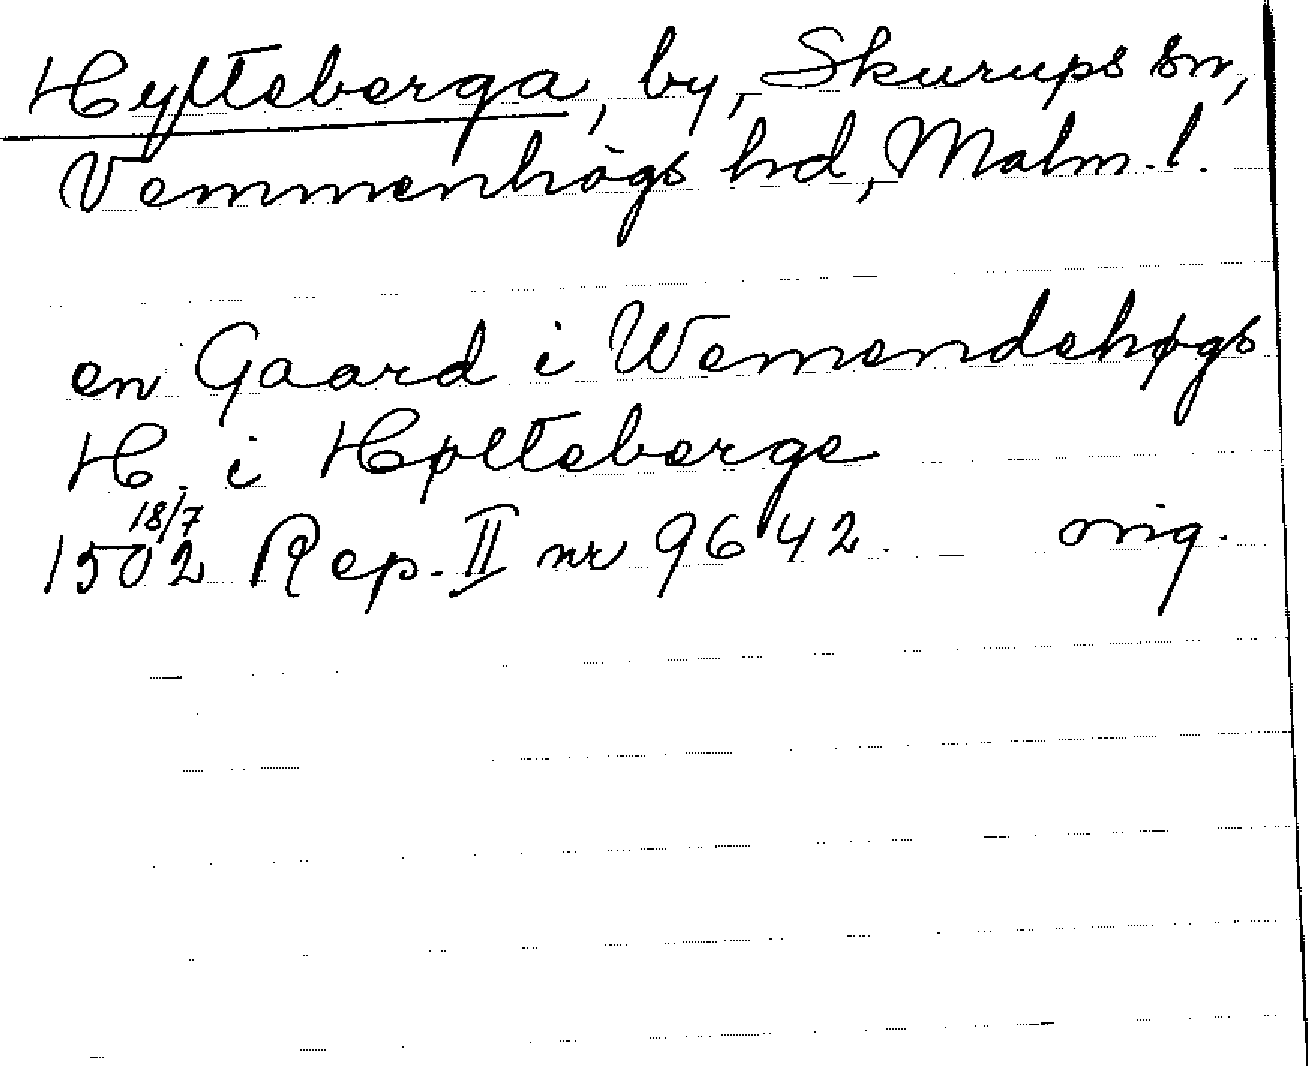 Hylteberga, by, Skurups sn,
Vemmenhögs hd, Malm. l.
en Gaard i Wemendehøgs
H. i Hølteberge
18/7
1502 Rep. II nr 9642. orig.